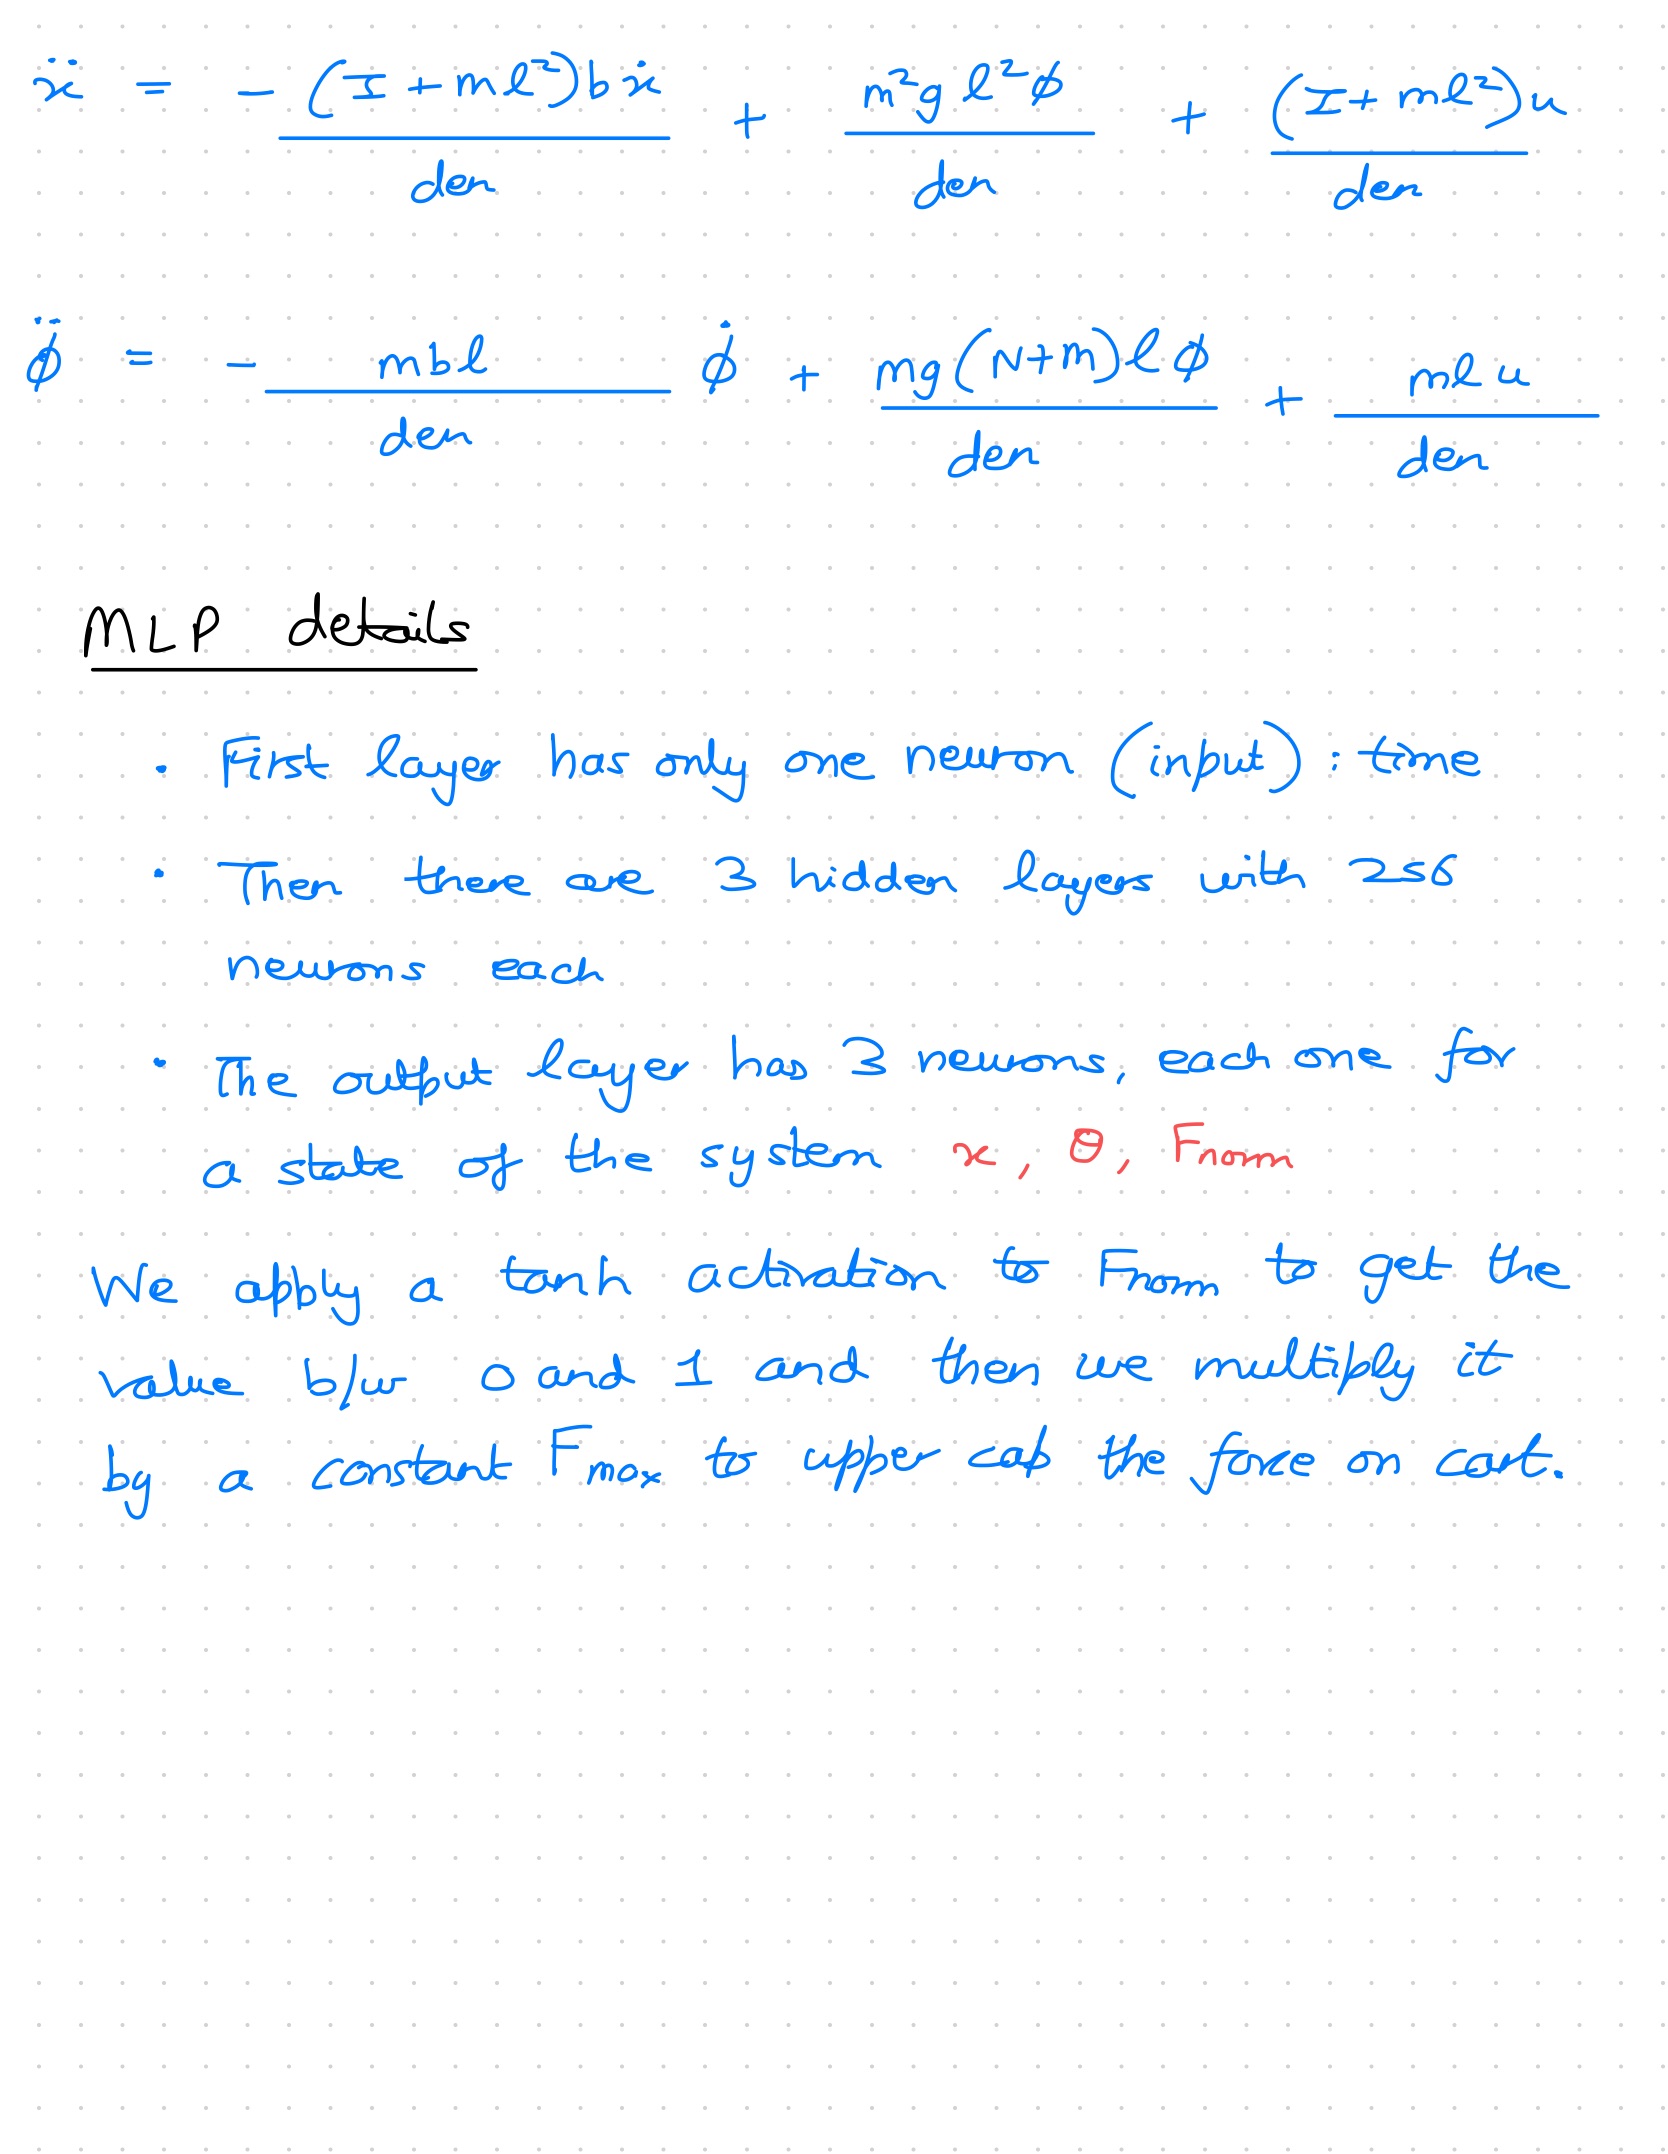 ẍ = - (I + ml²)bẋ / den + m²gl²ϕ / den + (I + ml²)u / den
ϕ̈ = - mbl / den ϕ̇ + mg(N+m)lϕ / den + mlu / den
MLP details
• First layer has only one neuron (input) : time
• Then there are 3 hidden layers with 256
neurons each
• The output layer has 3 neurons, each one for
a state of the system x, θ, Fnorm
We apply a tanh activation to Fnorm to get the
value b/w 0 and 1 and then we multiply it
by a constant Fmax to upper cap the force on cart.